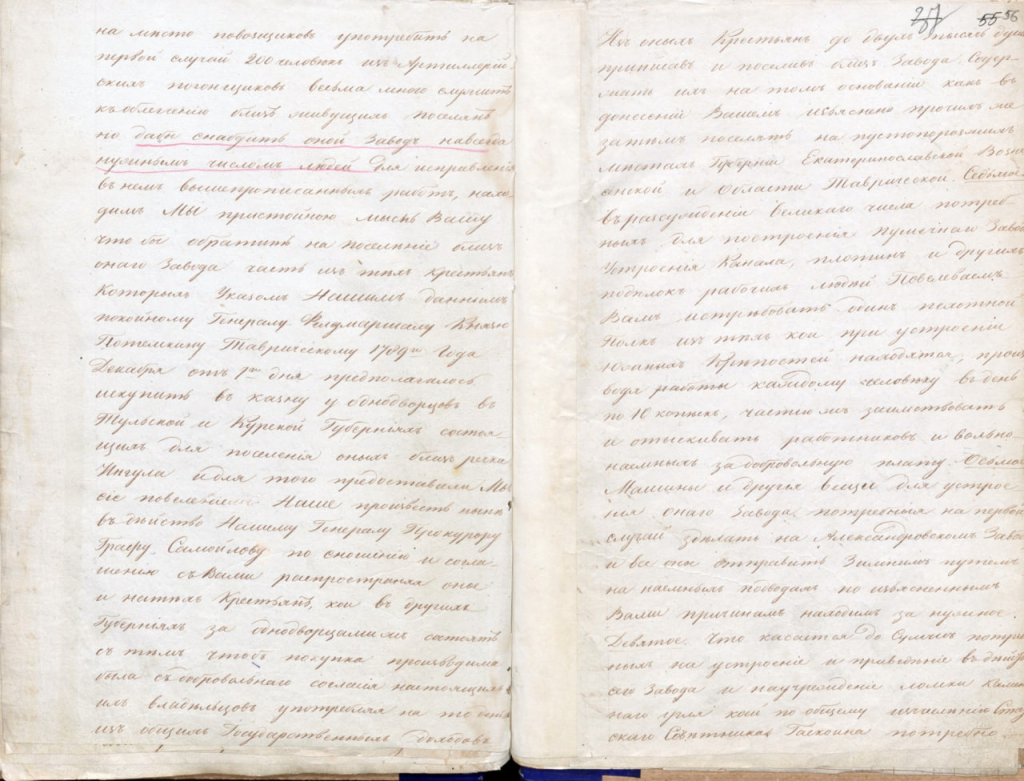 на место повозщиковъ употребить на
первой случай 200 человѣкъ изъ Артиллерій
скихъ погонщиковъ весьма много служитъ
къ облегченію близъ живущихъ поселянъ
но дабы снабдить оной Заводъ навсегда
нужнымъ числомъ людей для исправленія
въ немъ вышепрописанныхъ работъ, нахо
димъ Мы пристойною мысль Вашу
что бы обратить на поселеніе близъ
онаго Завода часть изъ тѣхъ крестьянъ
Которыхъ Указомъ Нашимъ даннымъ
покойному Генералу Фелдмаршалу Князю
Потемкину Таврическому 1789го Года
Декабря отъ 1го дня предполагалось
искупить въ казну у однодворцовъ въ
Тульской и Курской Губерніяхъ состоя
щихъ для поселенія оныхъ близъ реки
Ингула и для того предоставили Мы
сіе повелѣніе Наше произвесть нынѣ
въ дѣйство Нашему Генералу Прокурору
Графу Самойлову по сношенію и согла
шенію съ Вами распространяя оное
и на тѣхъ Крестьянъ, кои въ другихъ
Губерніяхъ за однодворцами состоятъ
съ тѣмъ чтобъ покупка производима
была съ добровольнаго согласія настоящихъ
ихъ владѣльцовъ употребляя на то деньги
изъ общихъ Государственныхъ доходовъ
27 55 56
Изъ оныхъ Крестьянъ до двухъ тысячь душъ
приписавъ и поселивъ близъ Завода. Содер
жать ихъ на томъ основаніи какъ въ
донесеніи Вашемъ изъяснено прочихъ же
за тѣмъ поселять на пустопорозжихъ
мѣстахъ Губерніи Екатеринославской Возне
сенской и Области Таврической. Седьмое
въ разсужденіи великаго числа потреб
ныхъ для построенія пушечнаго Завода
Устроенія Канала, плотинъ и другихъ
подѣлокъ рабочихъ людей Повелѣваемъ
Вамъ истребовать одинъ пехотной
Полкъ изъ тѣхъ кои при устроеніи
южныхъ Крѣпостей находятся, произ
водя работы каждому человѣку въ день
по 10 копѣекъ, частію жъ заимствовать
и отыскивать работниковъ и вольно
наемныхъ за добровольную плату. Осьмое
Машины и другія вещи для устрое
нія онаго Завода потребныя на первой
случай здѣлать на Александровскомъ Заводѣ
и все оное отправить Зимнимъ путемъ
на наемныхъ подводахъ по изъясненнымъ
Вами причинамъ находимъ за нужное.
Девятое Что касается до Суммъ потреб
ныхъ на устроеніе и приведеніе въ дѣйство
сего Завода и на учрежденіе ломки Камен
наго угля кой по общему изчисленію Стат
скаго Совѣтника Гаскоина потребно